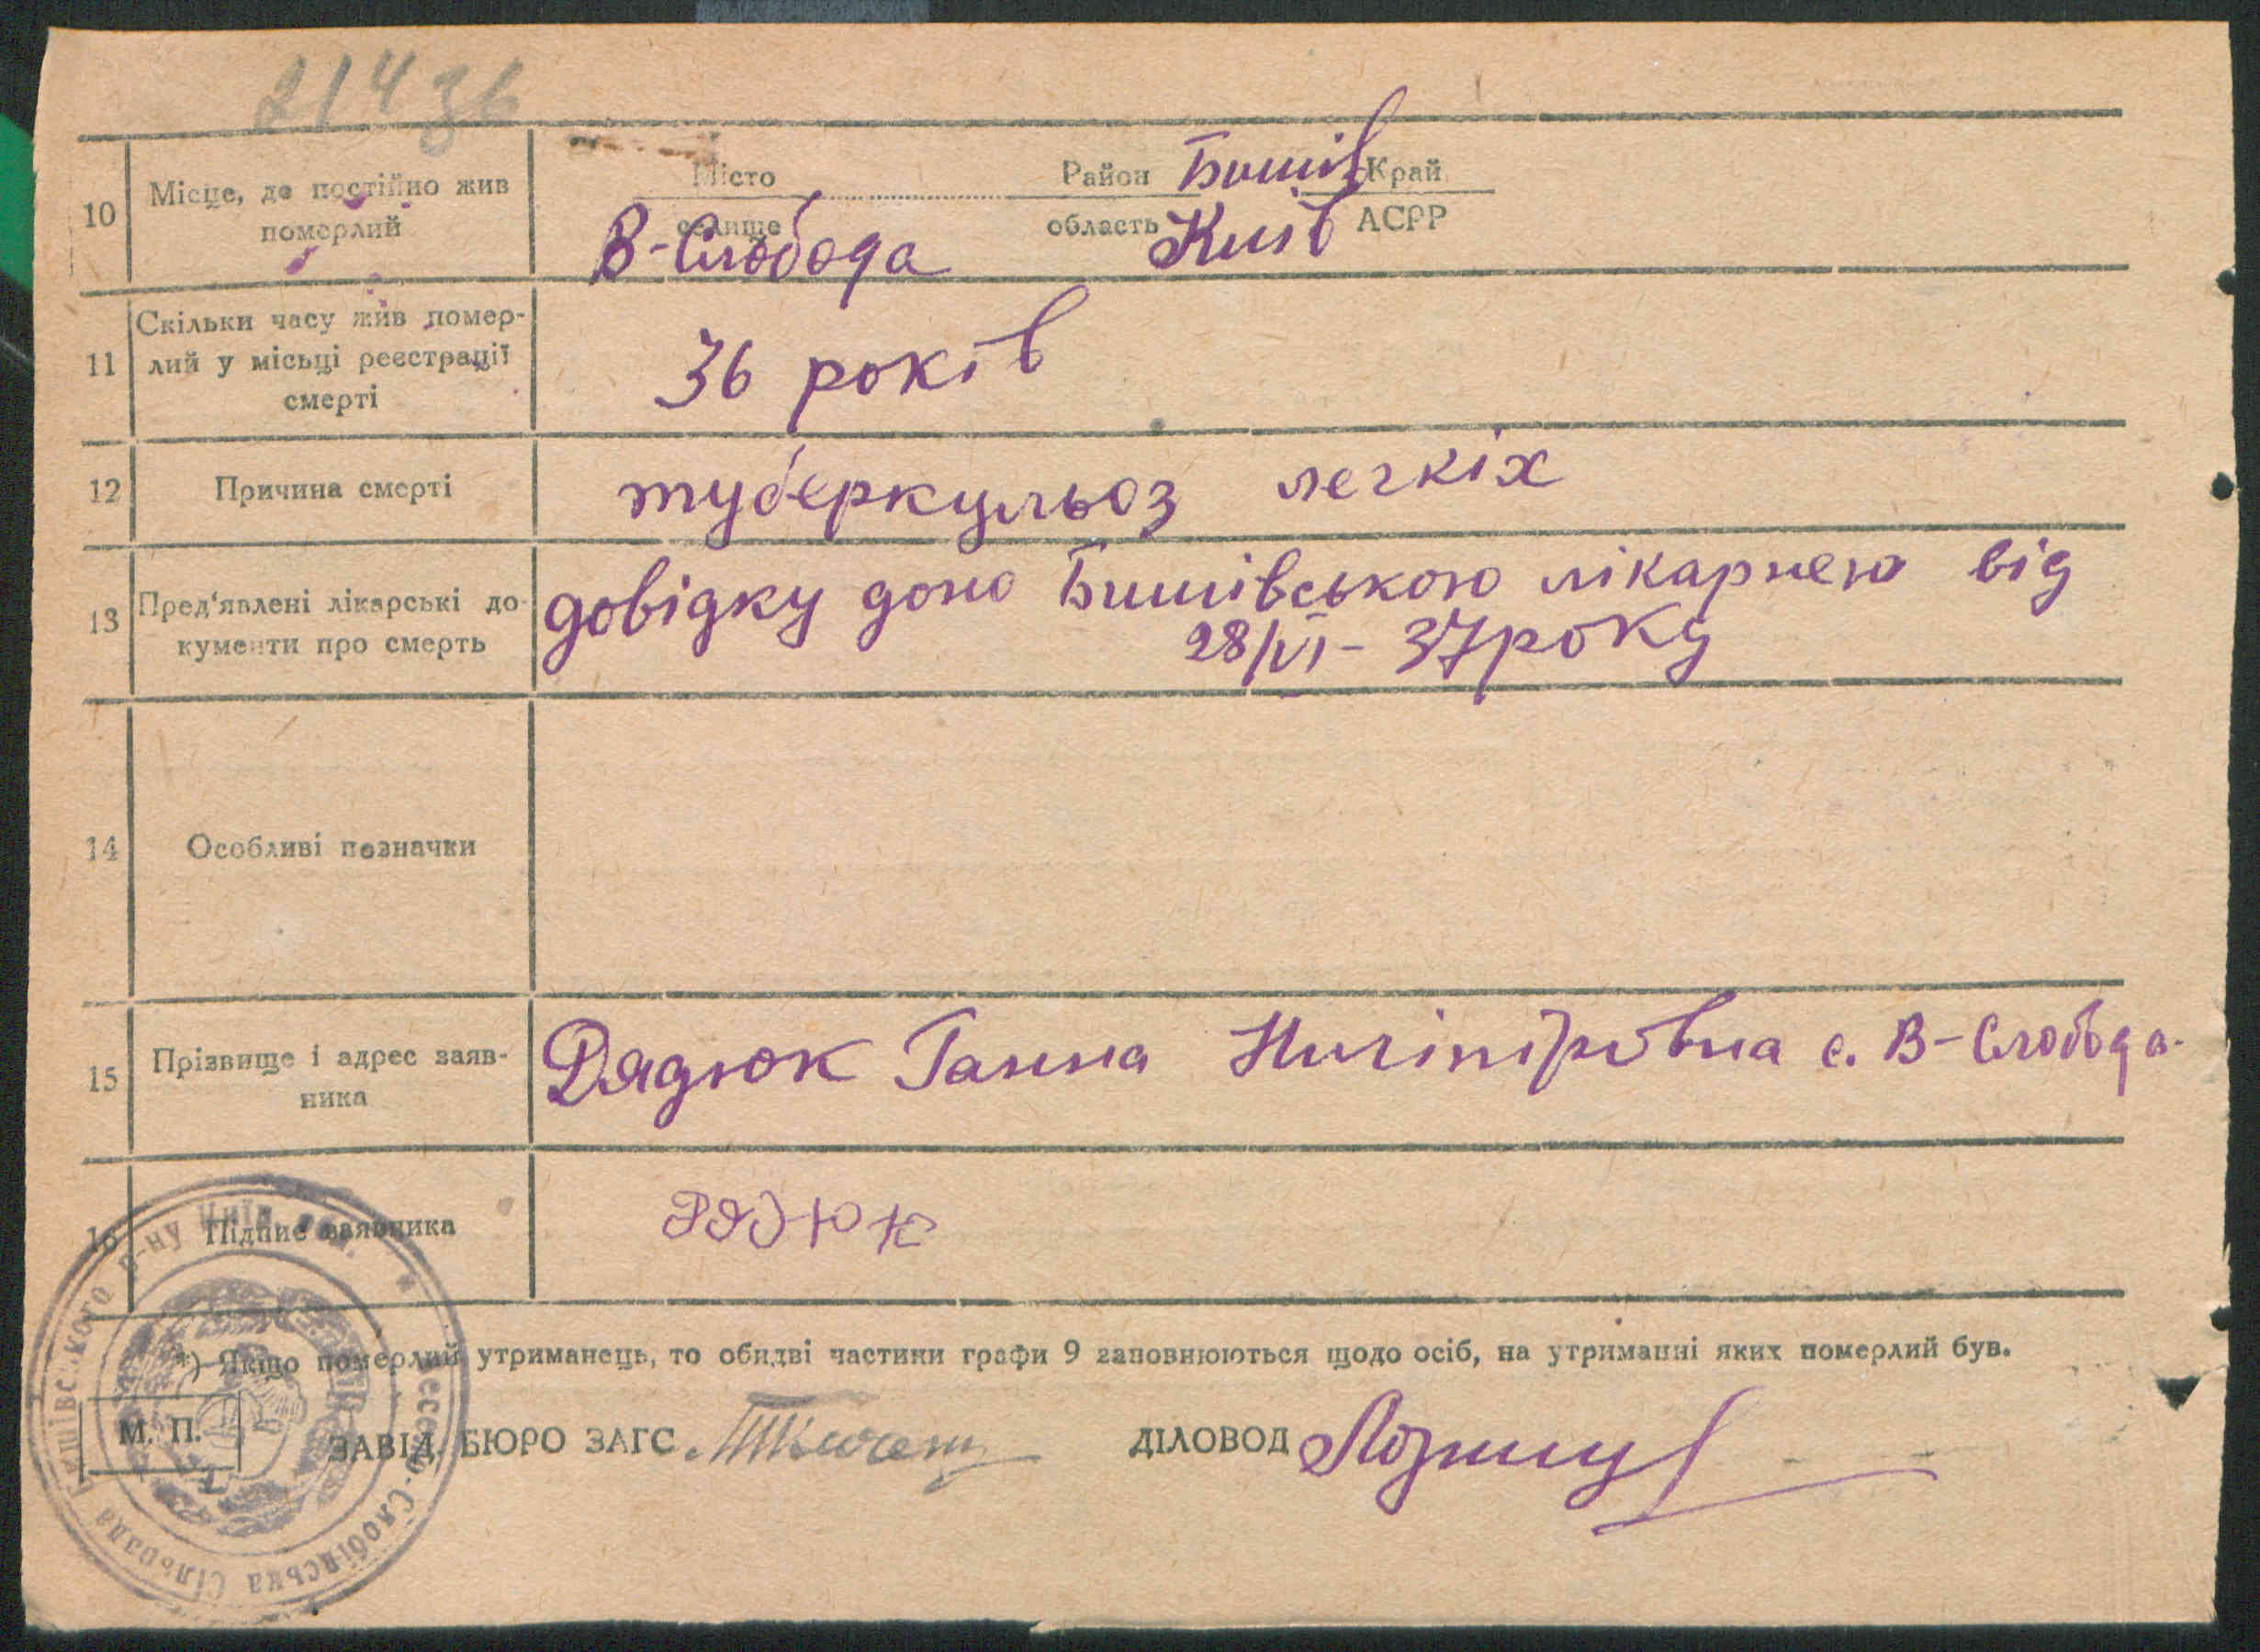 214 зб
10 Місце, де постійно жив померлий
Місто
селище
В-Слобода
Район Бишів Край
область Київ АСРР
11 Скільки часу жив помер-
лий у місьці реєстрації
смерті
36 років
12 Причина смерті
туберкульоз легкіх
13 Пред'явлені лікарські до-
кументи про смерть
довідку доно Бишівською лікарнею від
28/VI - 37 року
14 Особливі позначки
15 Прізвище і адрес заяв-
ника
Дядюк Ганна Ничіпірівна с. В-Слобода.
16 Підпис заявника
Дядюк
*) Якщо померлий утриманець, то обидві частини графи 9 заповнюються щодо осіб, на утриманні яких померлий був.
М. П.
ЗАВІД. БЮРО ЗАГС
ДІЛОВОД
Весело-Слобідська Сільрада Бишівського р-ну Київ. обл.